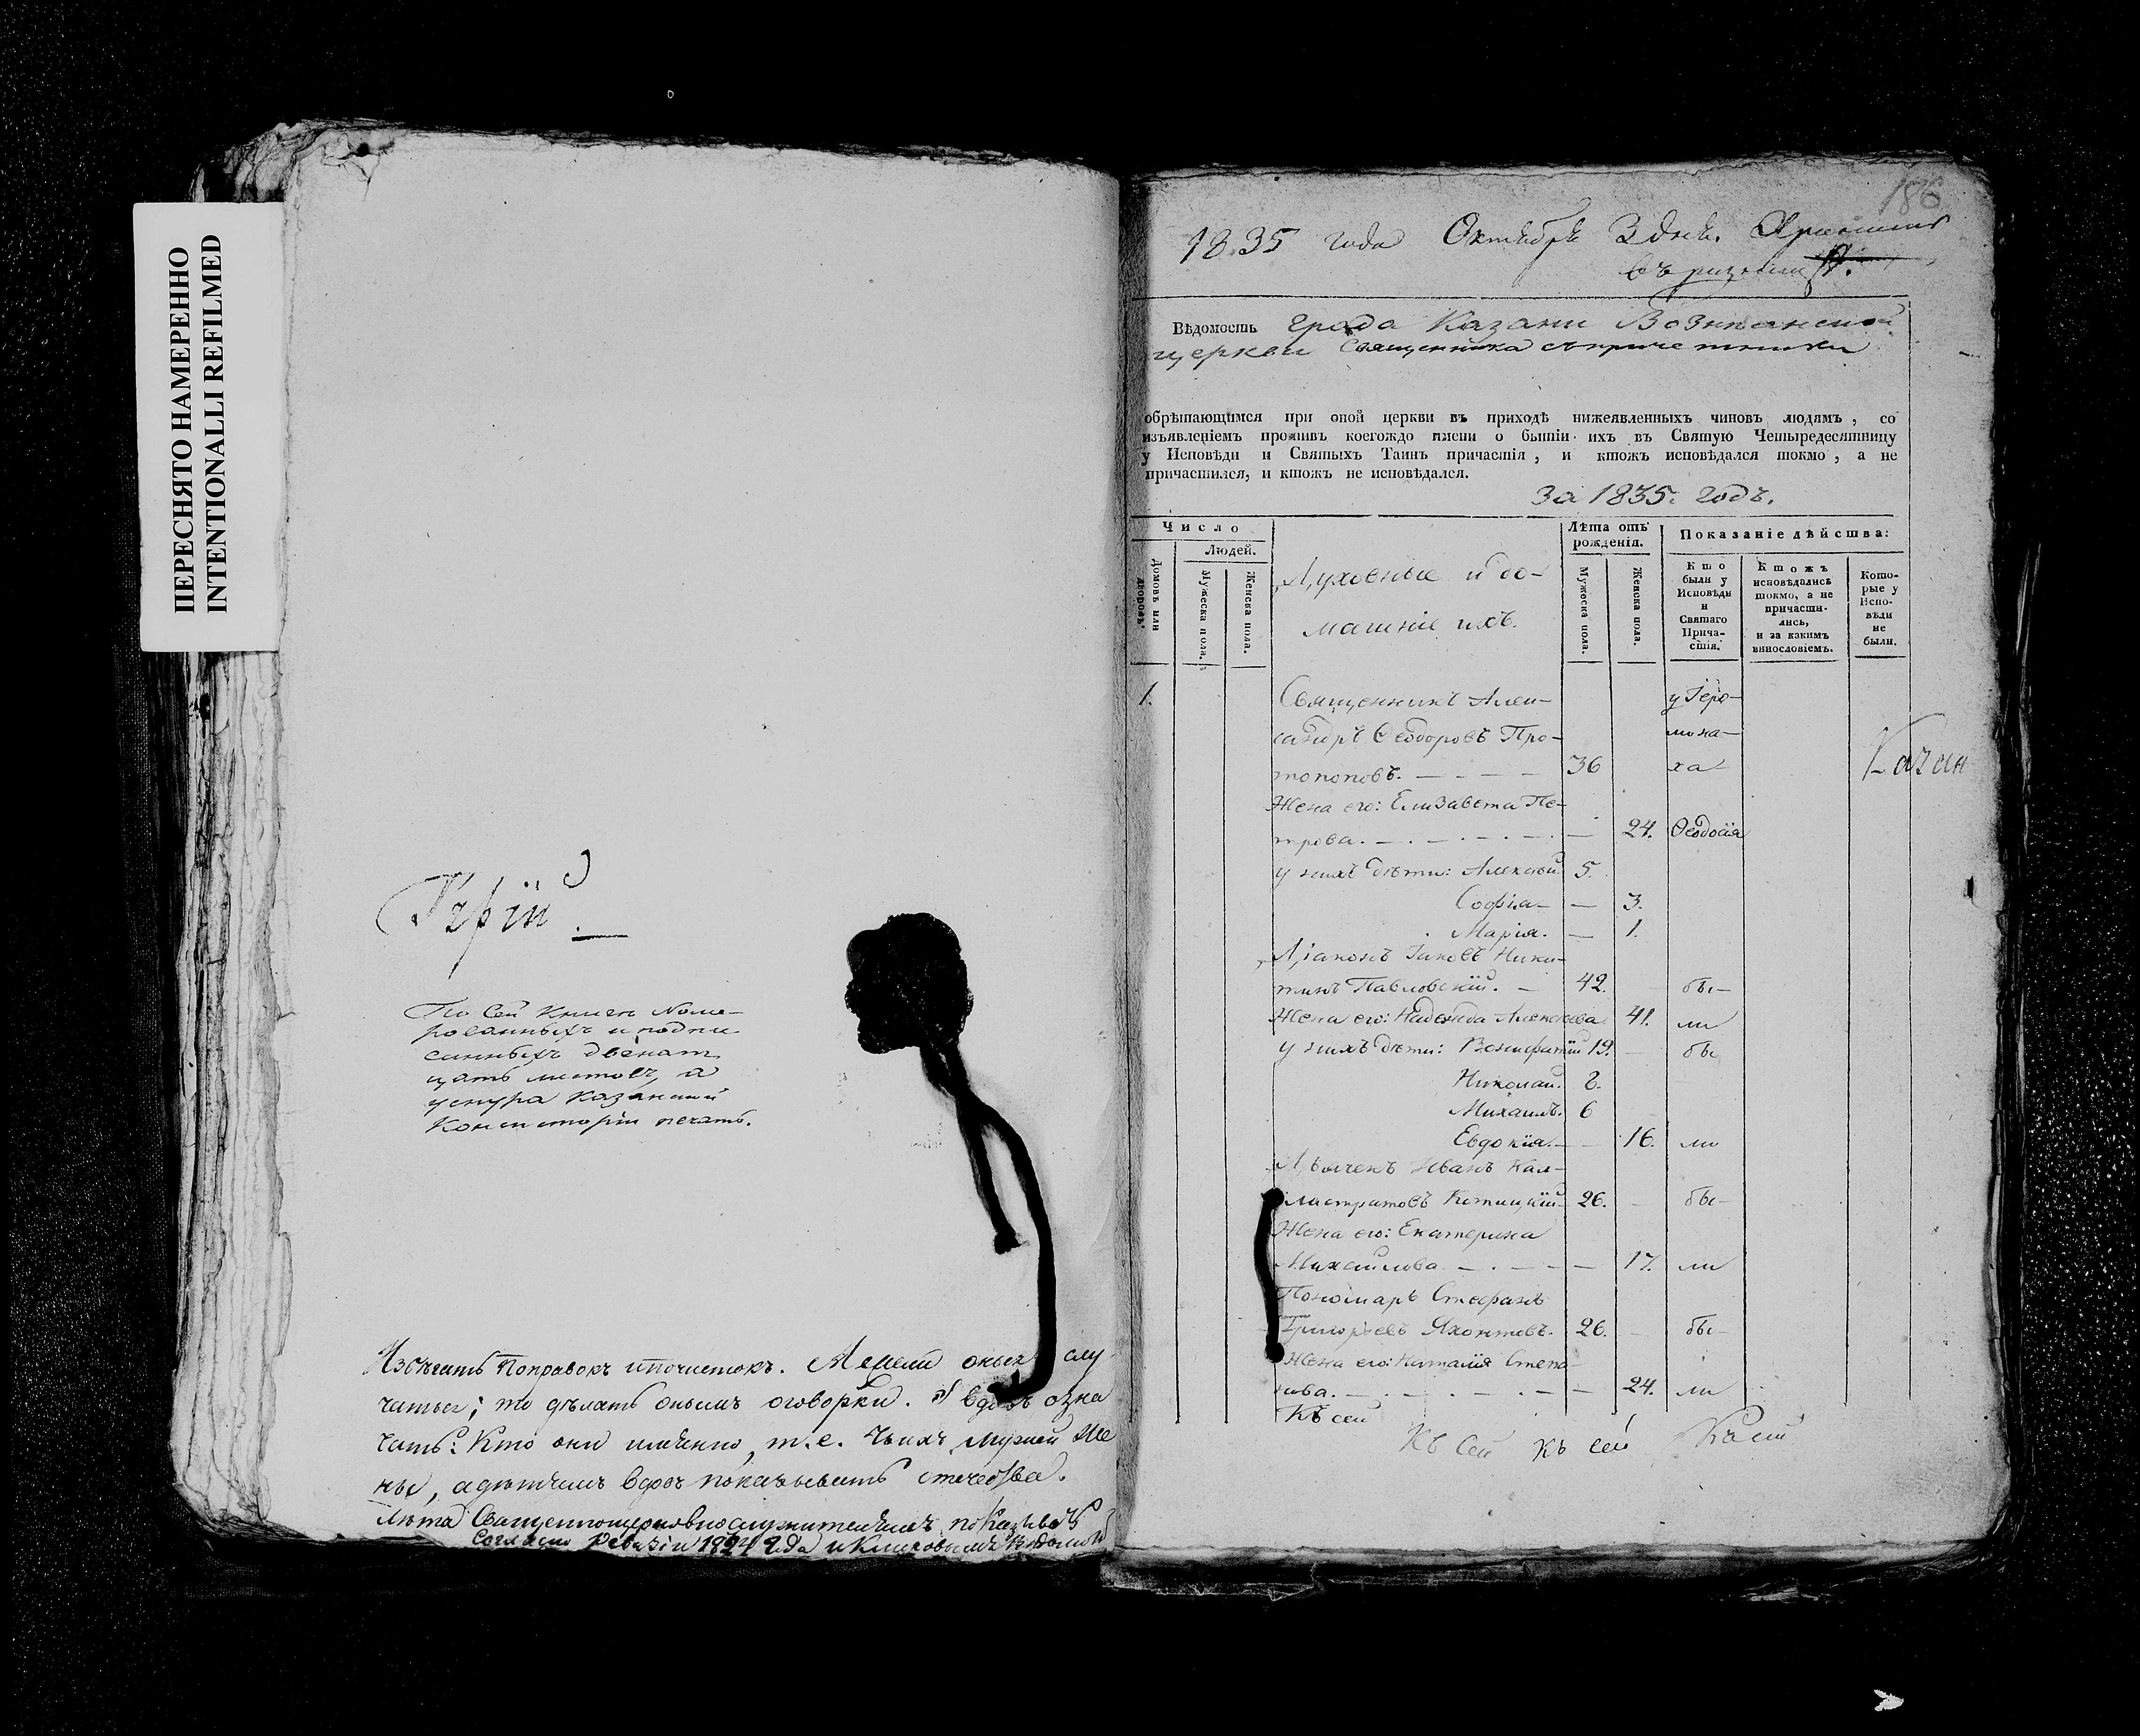 ПЕРЕСНЯТО НАМЕРЕННО
INTENTIONALLI REFILMED
По сей книгѣ Номе-
рованныхъ и подпи-
санныхъ двенат
цать листовъ, а
у снура Казанской
Консисторіи печать.
Избѣгать поправокъ и почистокъ. А ежели оныя слу
чатся; то дѣлать онымъ оговорки. вдовъ озна
чать: Кто они именно, т.е. чьихъ мужей же
ны, а дѣтямъ вдов показывать отчества.
Лѣта Священноцерковнослужителямъ показывать
Согласно Ревизіи 1824 года и Клировымъ Вѣдомо
186
1835 года Октября 3 дня.
въ ризницу
Вѣдомость града Казани Вознесенской
церкви Священника съ причетники
обрѣтающимся при оной церкви въ приходѣ нижеявленныхъ чиновъ людямъ, со
изъявленіемъ противъ коегождо имени о бытіи ихъ въ Святую Четыредесятницу
у Исповѣди и Святыхъ Таинъ причастія, и ктожъ исповѣдался токмо, а не
причастился, и ктожъ не исповѣдался.
за 1835. годъ.
Число
Людей.
Домовъ или дворовъ.
Мужеска пола.
Женска пола.
Духовные и до-
машніе ихъ.
Лѣта отъ рожденія.
Мужеска пола.
Женска пола.
Показаніе дѣйства:
Кто были у Исповѣди и Святаго Причастія.
Ктожъ исповѣдались токмо, а не причастились, и за какимъ винословіемъ.
Которые у Исповѣди не были.
1. Священникъ Алек- у Іеро-
сандръ Ѳеодоровъ Про- мона-
топоповъ. 36 ха
Казан
Жена его: Елизавета Пе-
трова. 24. Ѳеодосія
у нихъ дѣти: Алексѣй 5.
Софія 3.
Марія. 1.
Діаконъ Іаковъ Ники-
тинъ Павловскій. 42. бы-
Жена его: Надежда Алексѣева 41. ли
у нихъ дѣти: Вонифатій 19. бы
Николай. 8.
Михаилъ. 6
Евдокія. 16. ли
Дьячекъ Иванъ Кал-
листратовъ 26. бы-
Жена его: Екатерина
Михайлова 17. ли
Пономарь Стефанъ
Григорьевъ Яхонтовъ. 26. бы-
Жена его: Наталія Степа-
нова. 24. ли
Къ сей
Къ сей къ сей Къ сей